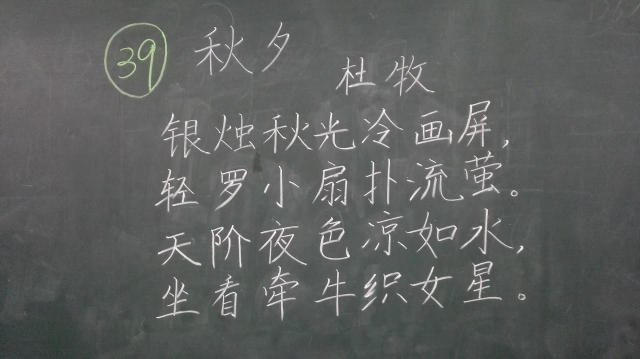 39 秋夕
杜牧
银烛秋光冷画屏,
轻罗小扇扑流萤。
天阶夜色凉如水,
坐看牵牛织女星。